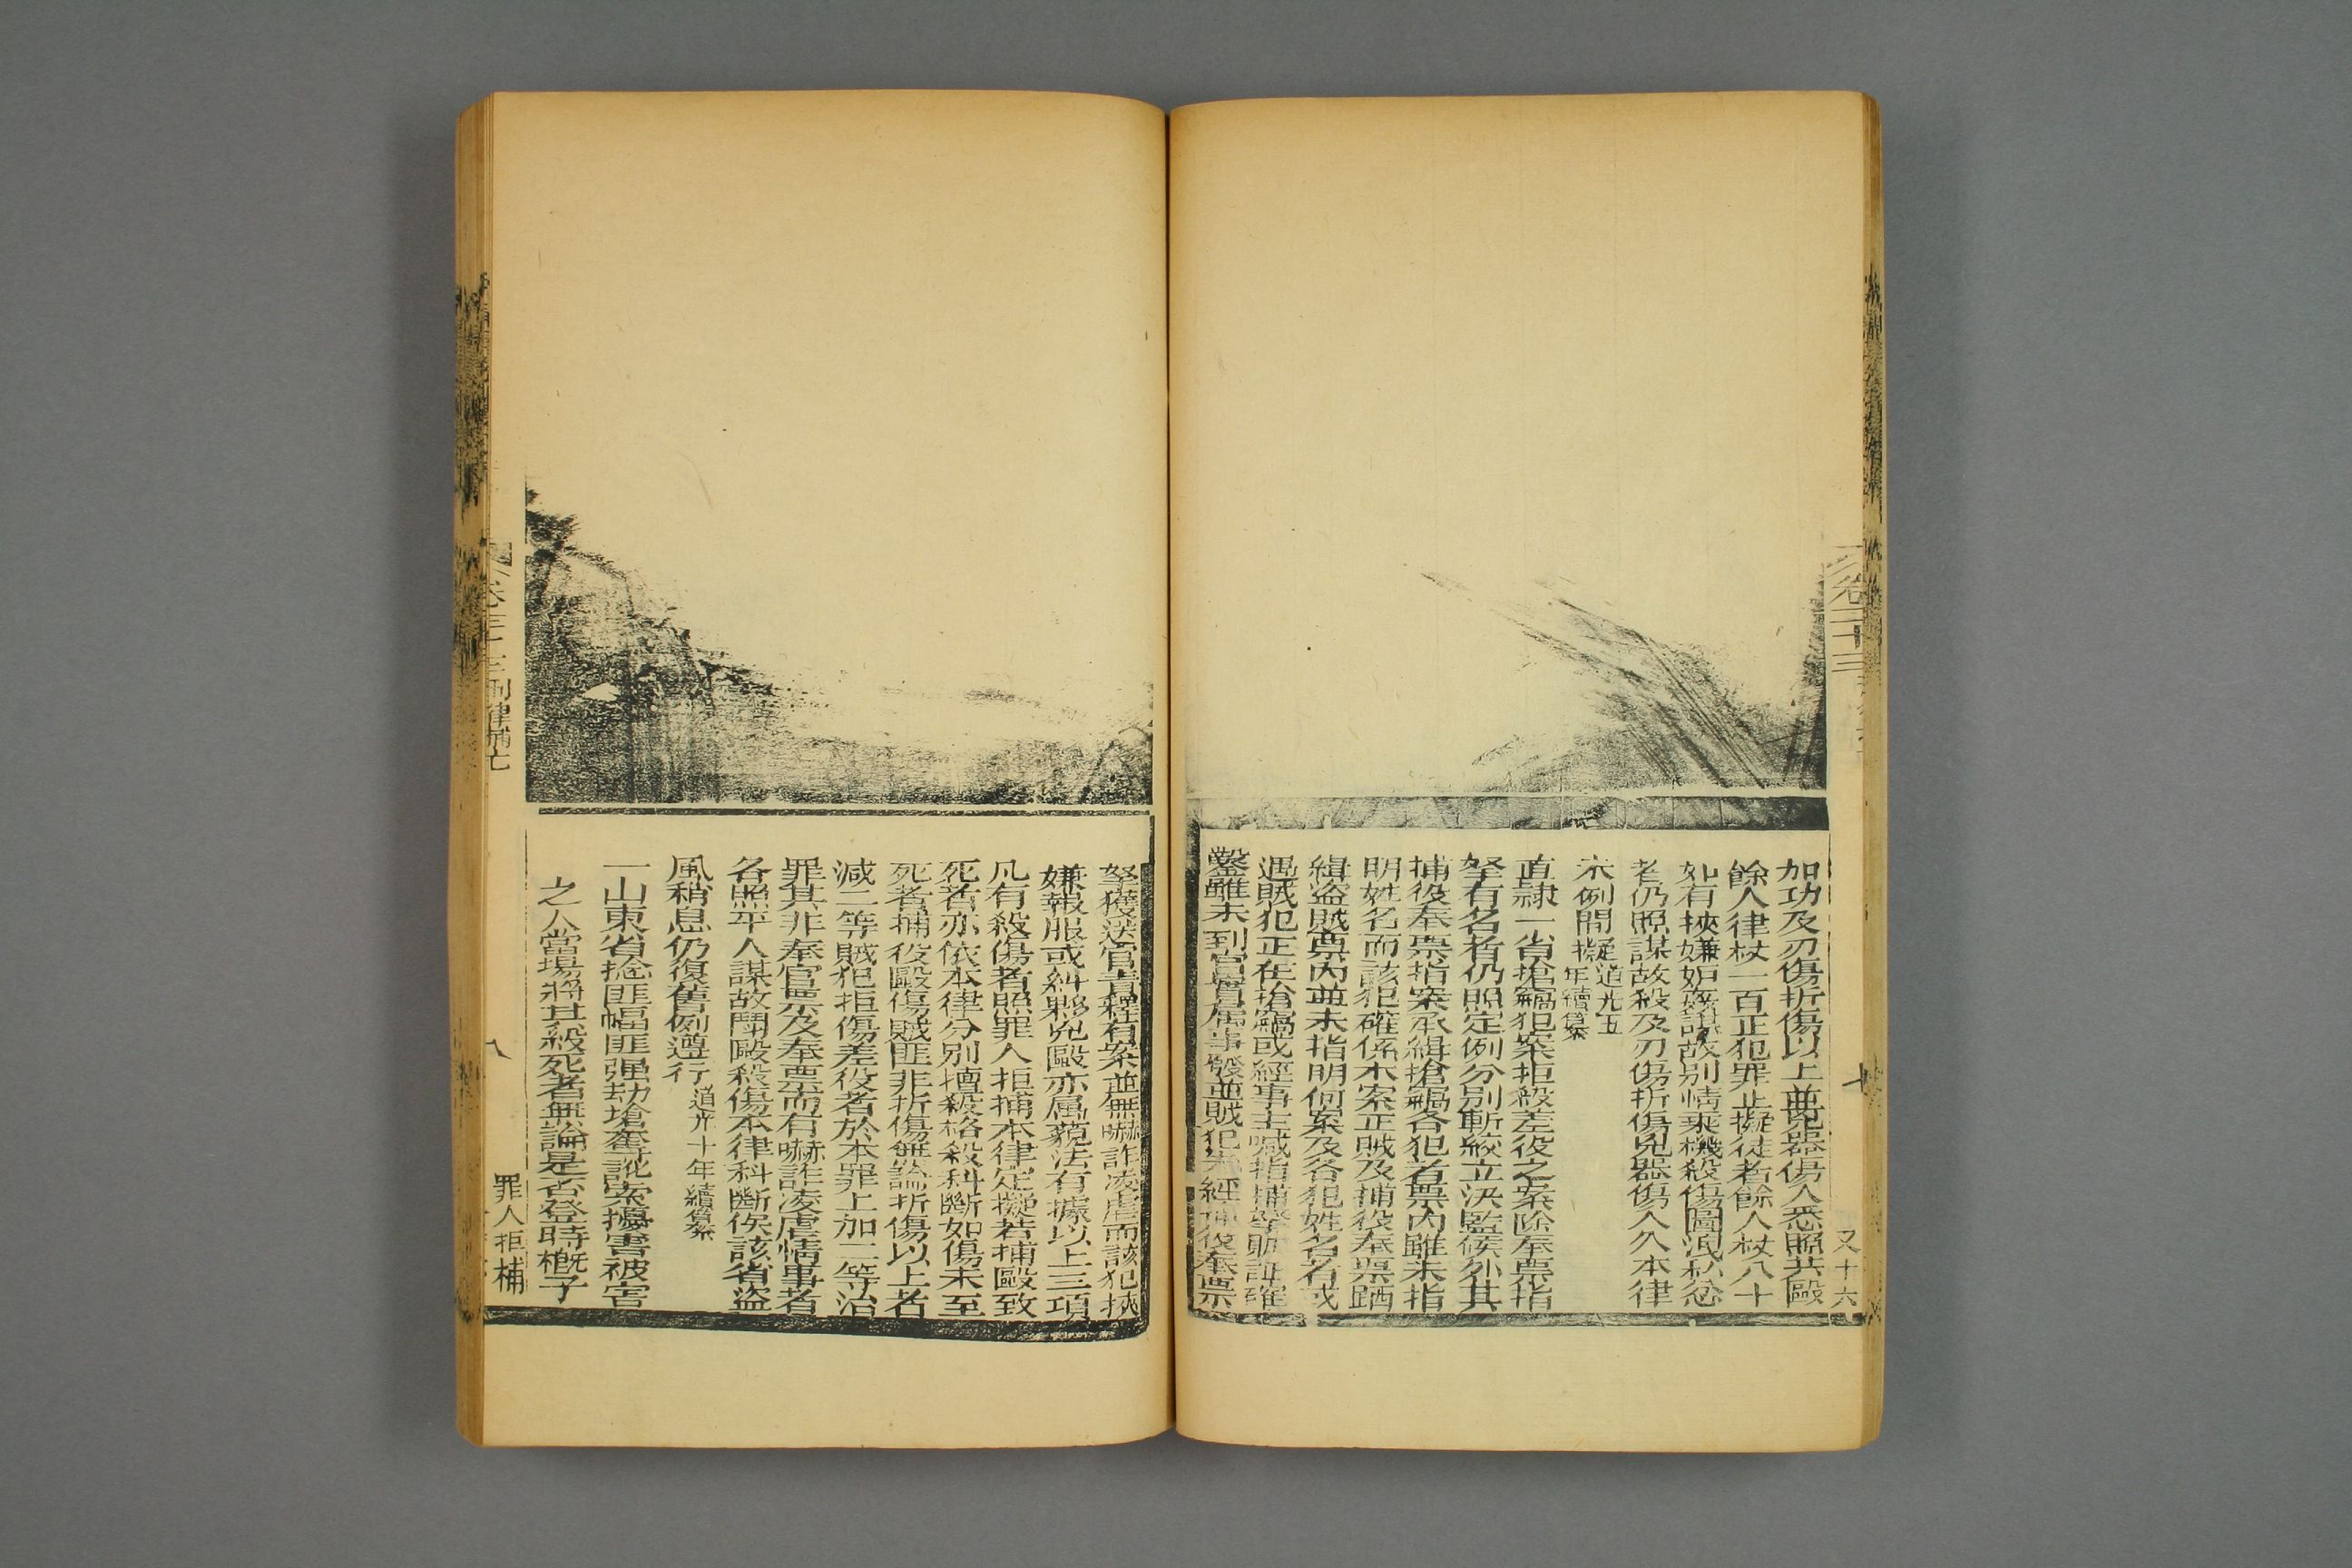 卷三十三
又十六
加功及刃傷折傷以上並兇器傷人悉照共毆
餘人律杖一百正犯罪止擬徒者餘人杖八十
如有挾嫌妬姦謀故別情乘機殺傷圖洩私忿
者仍照謀故殺及刃傷折傷兇器傷人各本律
本例問擬道光五年續纂
直隸一省搶竊犯案拒殺差役之案除奉票指
拏有名者仍照定例分別斬絞立決監候外其
捕役奉票指案承緝搶竊各犯者票內雖未指
明姓名而該犯確係本案正賊及捕役奉票跴
緝盜賊票內並未指明何案及各犯姓名者或
遇賊犯正在搶竊或經事主喊指捕拏贓証確
鑿雖未到官實屬事發並賊犯先經捕役奉票
拏獲送官責釋有案並無嚇詐凌虐而該犯挾
嫌報服或糾夥兇毆亦屬藐法有據以上三項
凡有殺傷者照罪人拒捕本律定擬若捕毆致
死者亦依本律分別擅殺格殺科斷如傷未至
死者捕役毆傷賊匪非折傷無論折傷以上者
減二等賊犯拒傷差役者於本罪上加二等治
罪其非奉官票及奉票而有嚇詐凌虐情事者
各照平人謀故鬥毆殺傷本律科斷俟該省盜
風稍息仍復舊例遵行道光十年續纂
一山東省捻匪幅匪强劫搶奪訛索擄害被害
之人當場將其殺死者無論是否登時槪予
卷三十三刑律捕亡
八
罪人拒捕